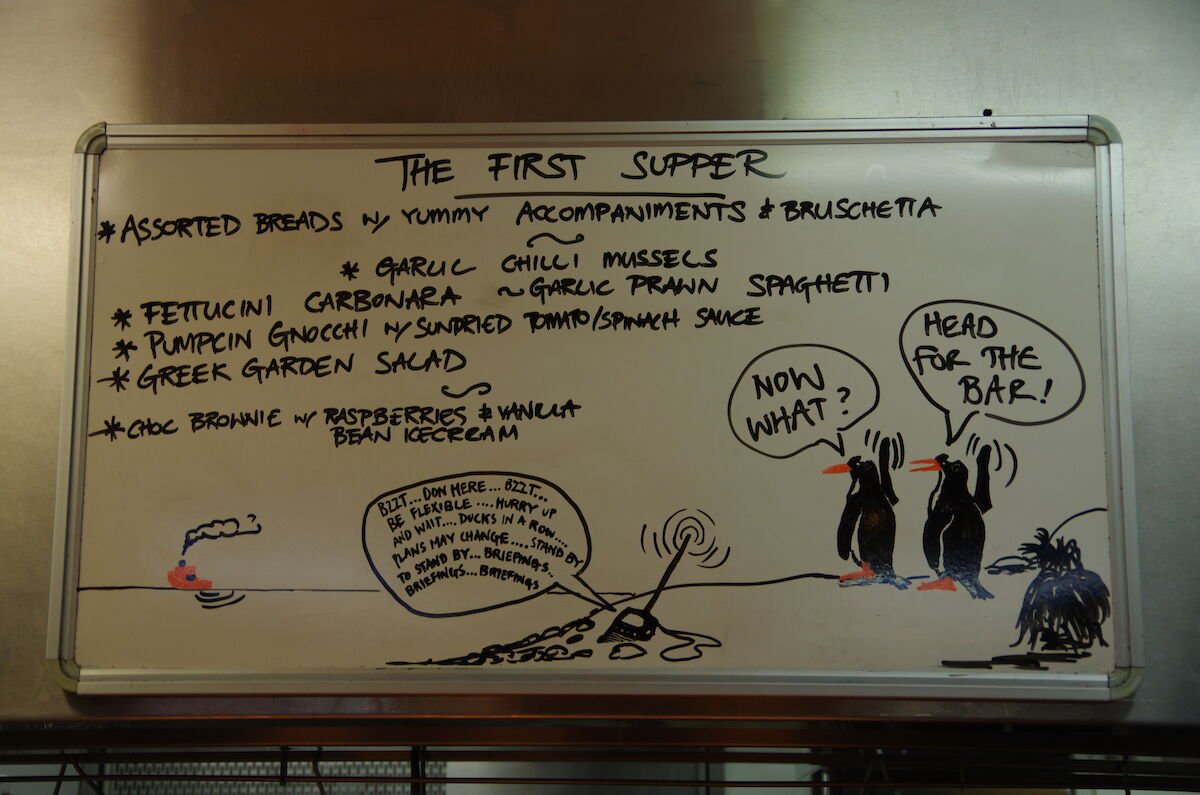 THE FIRST SUPPER
* ASSORTED BREADS W/ YUMMY ACCOMPANIMENTS & BRUSCHETTA
~
* GARLIC CHILLI MUSSELS
* FETTUCINI CARBONARA ~ GARLIC PRAWN SPAGHETTI
* PUMPCIN GNOCCHI W/ SUNDRIED TOMATO/SPINACH SAUCE
* GREEK GARDEN SALAD
~
* CHOC BROWNIE W/ RASPBERRIES & VANILLA
BEAN ICECREAM
NOW
WHAT?
HEAD
FOR THE
BAR!
BZZT... DON HERE... BZZT...
BE FLEXIBLE .... HURRY UP
AND WAIT.... DUCKS IN A ROW....
PLANS MAY CHANGE.... STAND BY
TO STAND BY... BRIEFINGS..
BRIEFINGS... BRIEFINGS
?